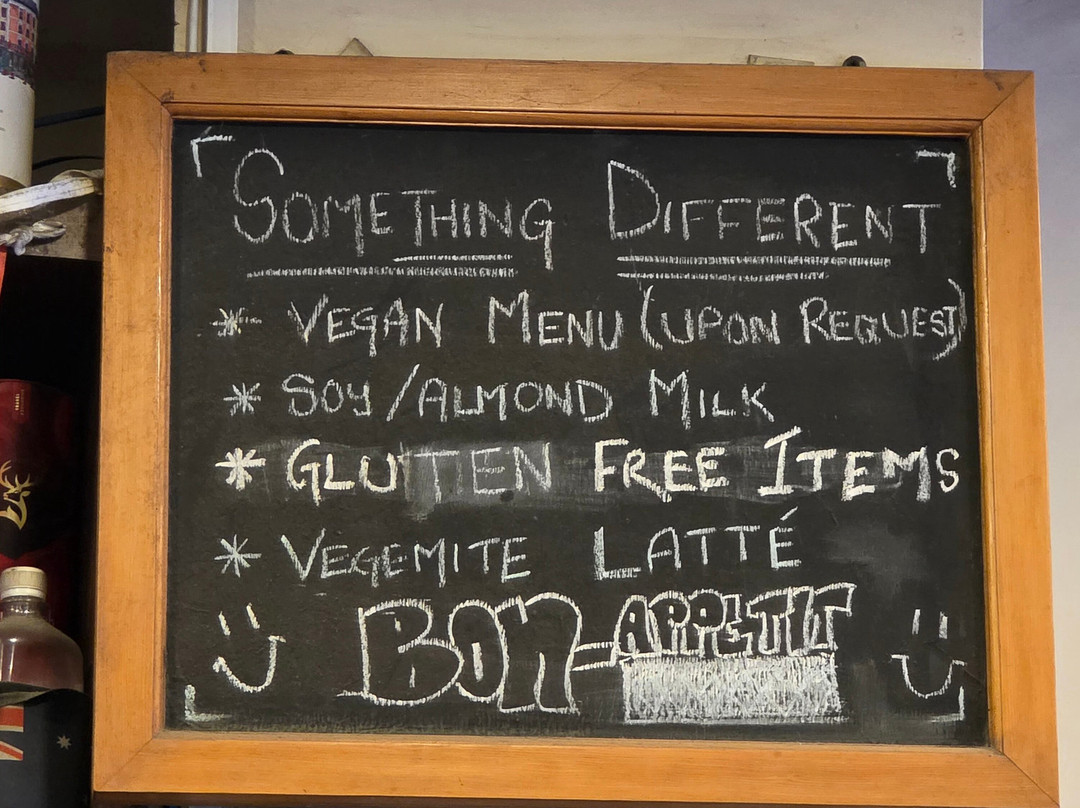 SOMETHING DIFFERENT
* VEGAN MENU (UPON REQUEST)
* SOY/ALMOND MILK
* GLUTTEN FREE ITEMS
* VEGEMITE LATTÉ
BON-APPETIT